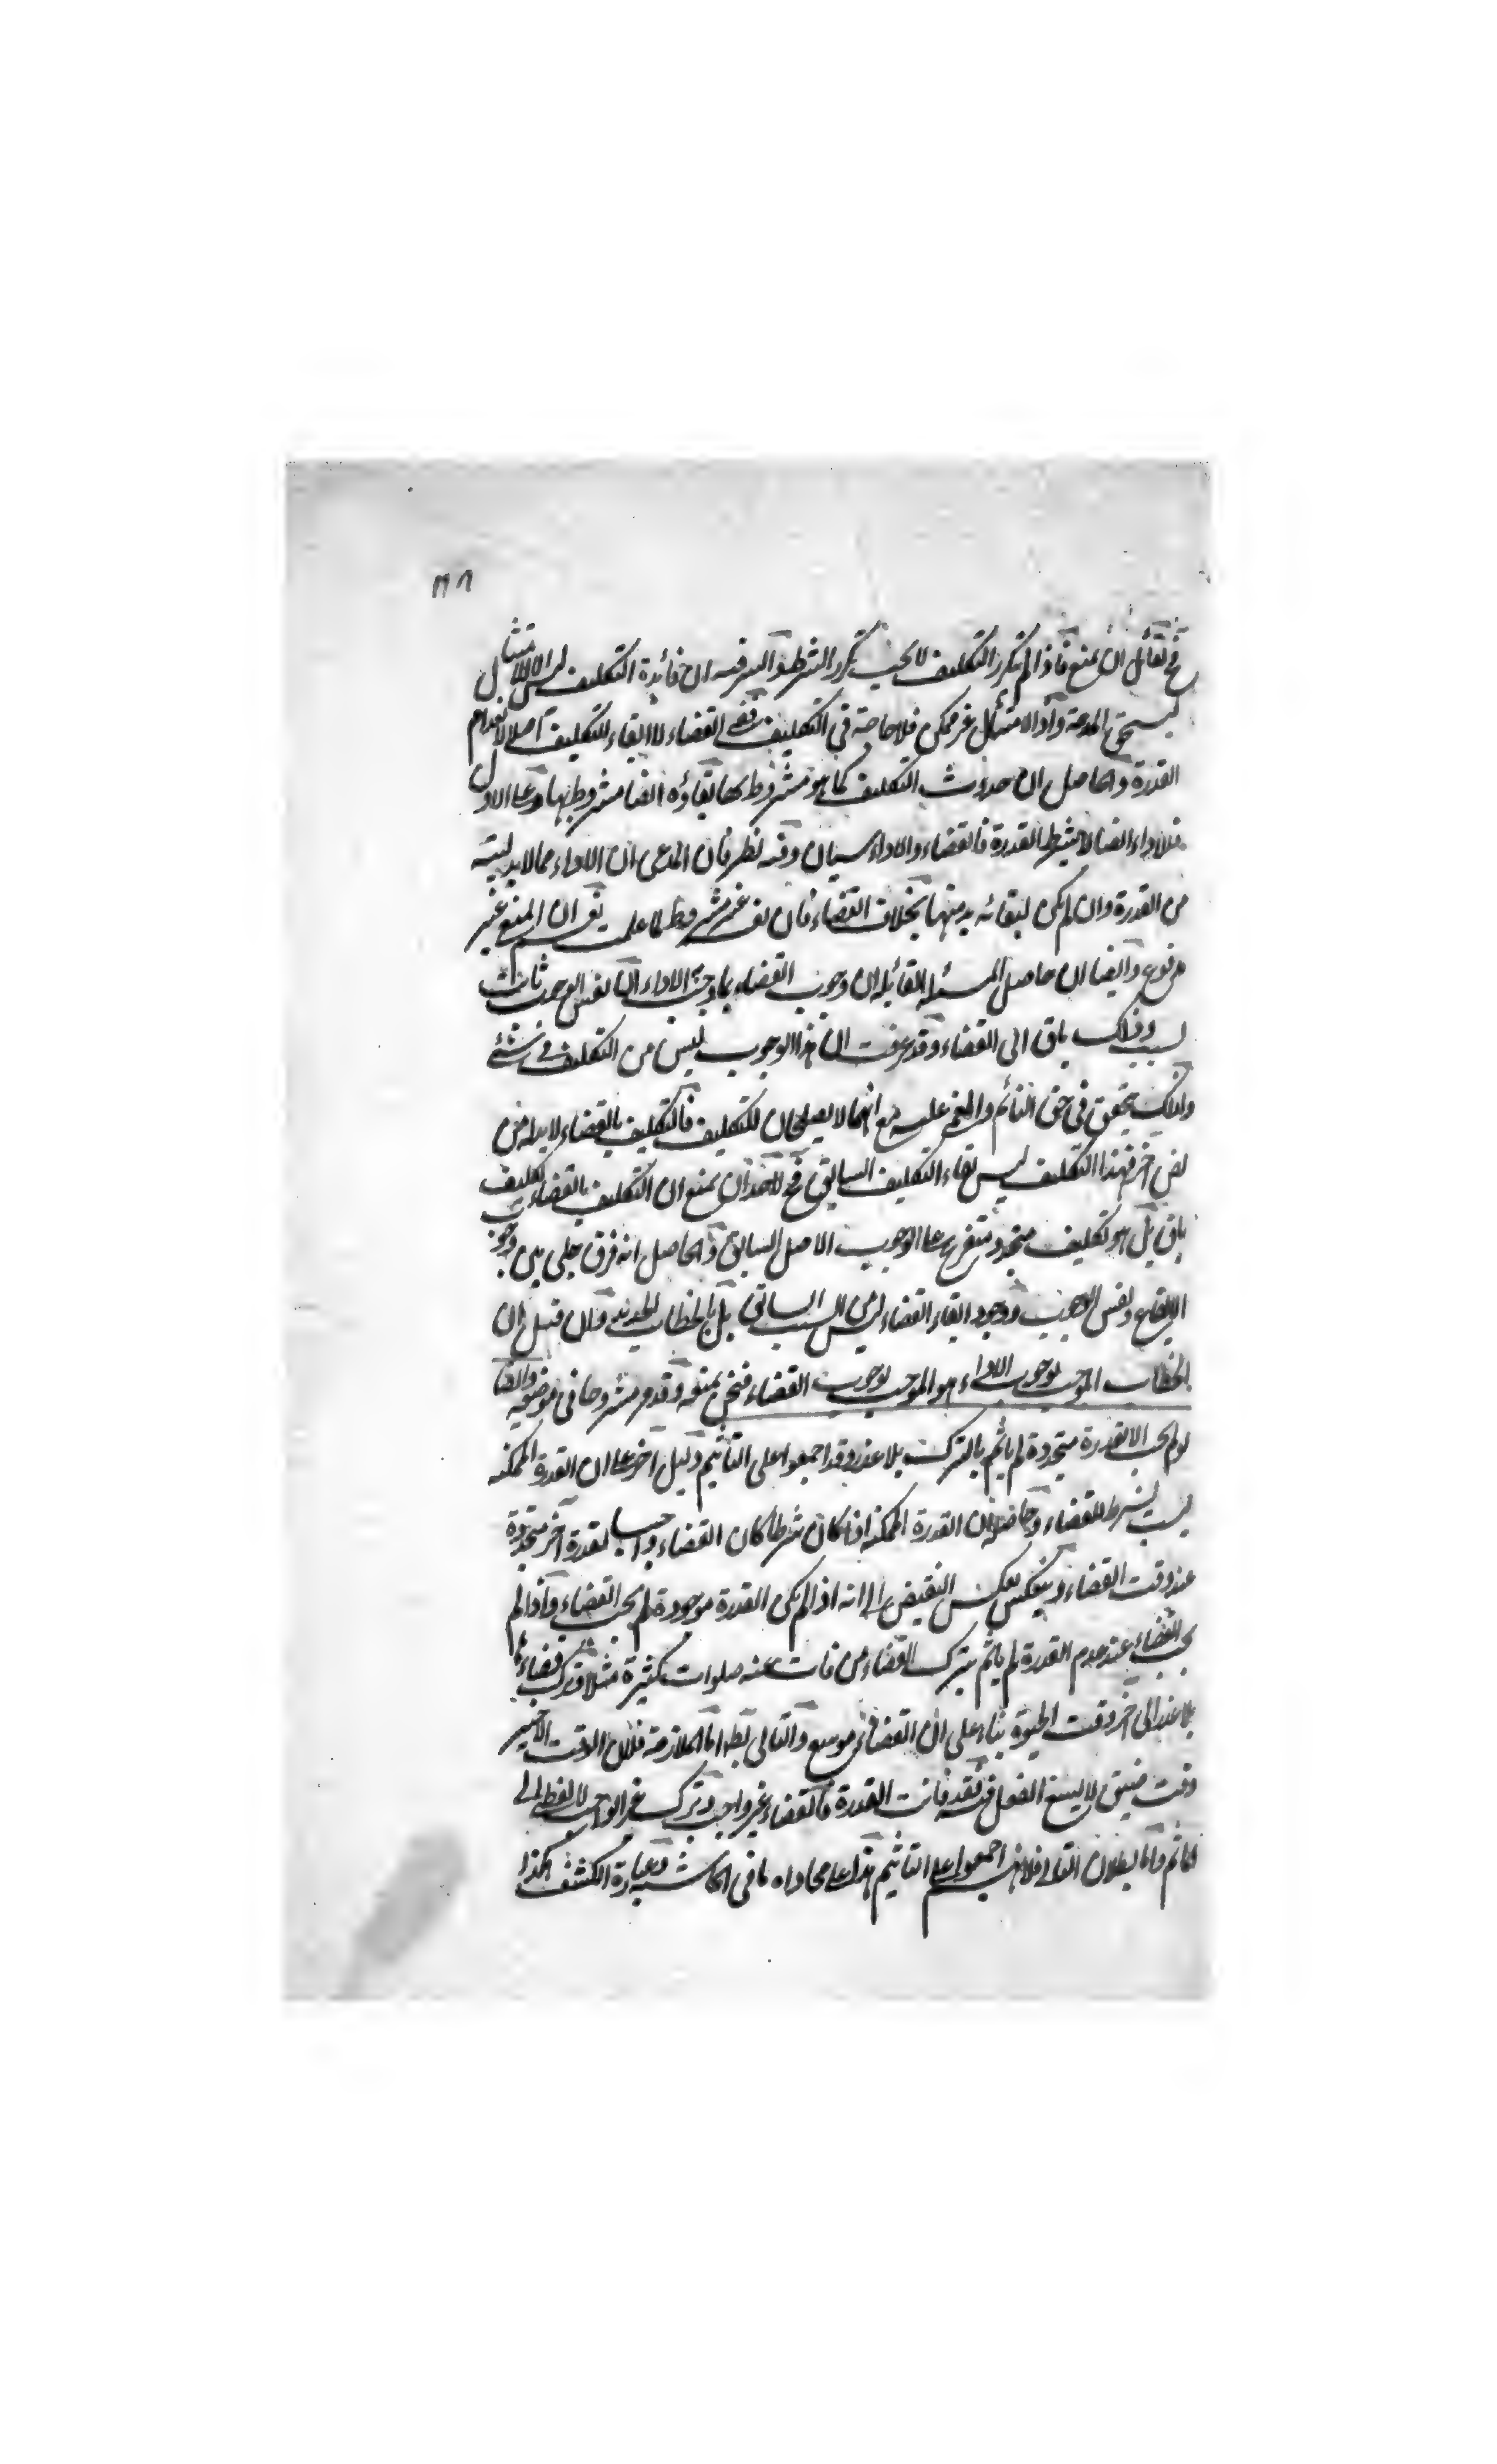 فح لقائل ان يمنع فاذا لم يتكرر التكليف لا يجب تكرر الشرط والسر فيه ان فائدة التكليف ليس الا الامتثال
ليستحق المدحة واذ الامتثال غير ممكن فلا حاجة في التكليف ففي القضاء لا ابقاء للتكليف اصلا لانعدام
القدرة والحاصل ان حدوث التكليف كما هو مشروط بها بقاؤه ايضا مشروط بها وعلى الاول
فلاداء ايضا لا يشترط القدرة فالقضاء والاداء سيان وفيه نظر فان المدعى ان الاداء مما لا بد
من القدرة وان لم يكن لبقائه بد منها بخلاف القضاء فان غير مشروط لما علمت نعم ان المنع غير
مدفوع وايضا ان حاصل المسئلة القائلة ان وجوب القضاء بما وجب به الاداء ان نفس الوجوب ثابت
لسبب وذاك باق الى القضاء وقد عرفت ان هذا الوجوب ليس من التكليف في شئ
ولذلك يتحقق في حق النائم والمغمى عليه مع انهما لا يصلحان للتكليف فالتكليف بالقضاء لا بد له من
نص آخر فهذا التكليف ليس بقاء التكليف السابق فح لاحد ان يمنع ان التكليف بالقضاء تكليف
باق بل هو تكليف متجدد متفرع على الوجوب الاصل السابق والحاصل انه فرق جلي بين وجوب
الايقاع ونفس الوجوب ووجود ايقاء القضاء ليس من السبب السابق بل بالخطاب الجديد وان قيل ان
الخطاب الموجب لوجوب الاداء هو الموجب لوجوب القضاء فنحن نمنعه وقد مر مشروحا في موضعه وايضا
لو لم يجب الا بقدرة متجددة لم ياثم بالترك بلا عذر وقد اجمعوا على التاثيم دليل آخر على ان القدرة الممكنة
ليست بشرط للقضاء وحاصله ان القدرة الممكنة اذا كان شرطا كان القضاء واجبا لقدرة آخر متجددة
عند وقت القضاء وينعكس بعكس النقيض الى انه اذا لم يكن القدرة موجودة لم يجب القضاء واذا لم
يجب القضاء عند عدم القدرة لم ياثم بترك القضاء من فات عنه صلوات كثيرة مثلا وترك قضاءها
بلا عذر الى آخر وقت الحيوة بناء على ان القضاء موسع والتالي بط اما الملازمة فلان الوقت الاخير
وقت ضيق لا يسع الفعل فيه فقد فاتت القدرة فالقضاء غير واجب وترك غير الواجب لا يفضي الى
الماثم واما بطلان التالي فلانهم اجمعوا على التاثيم هذا على محاذاه ما في الحاشية وعبارة الكشف هكذا